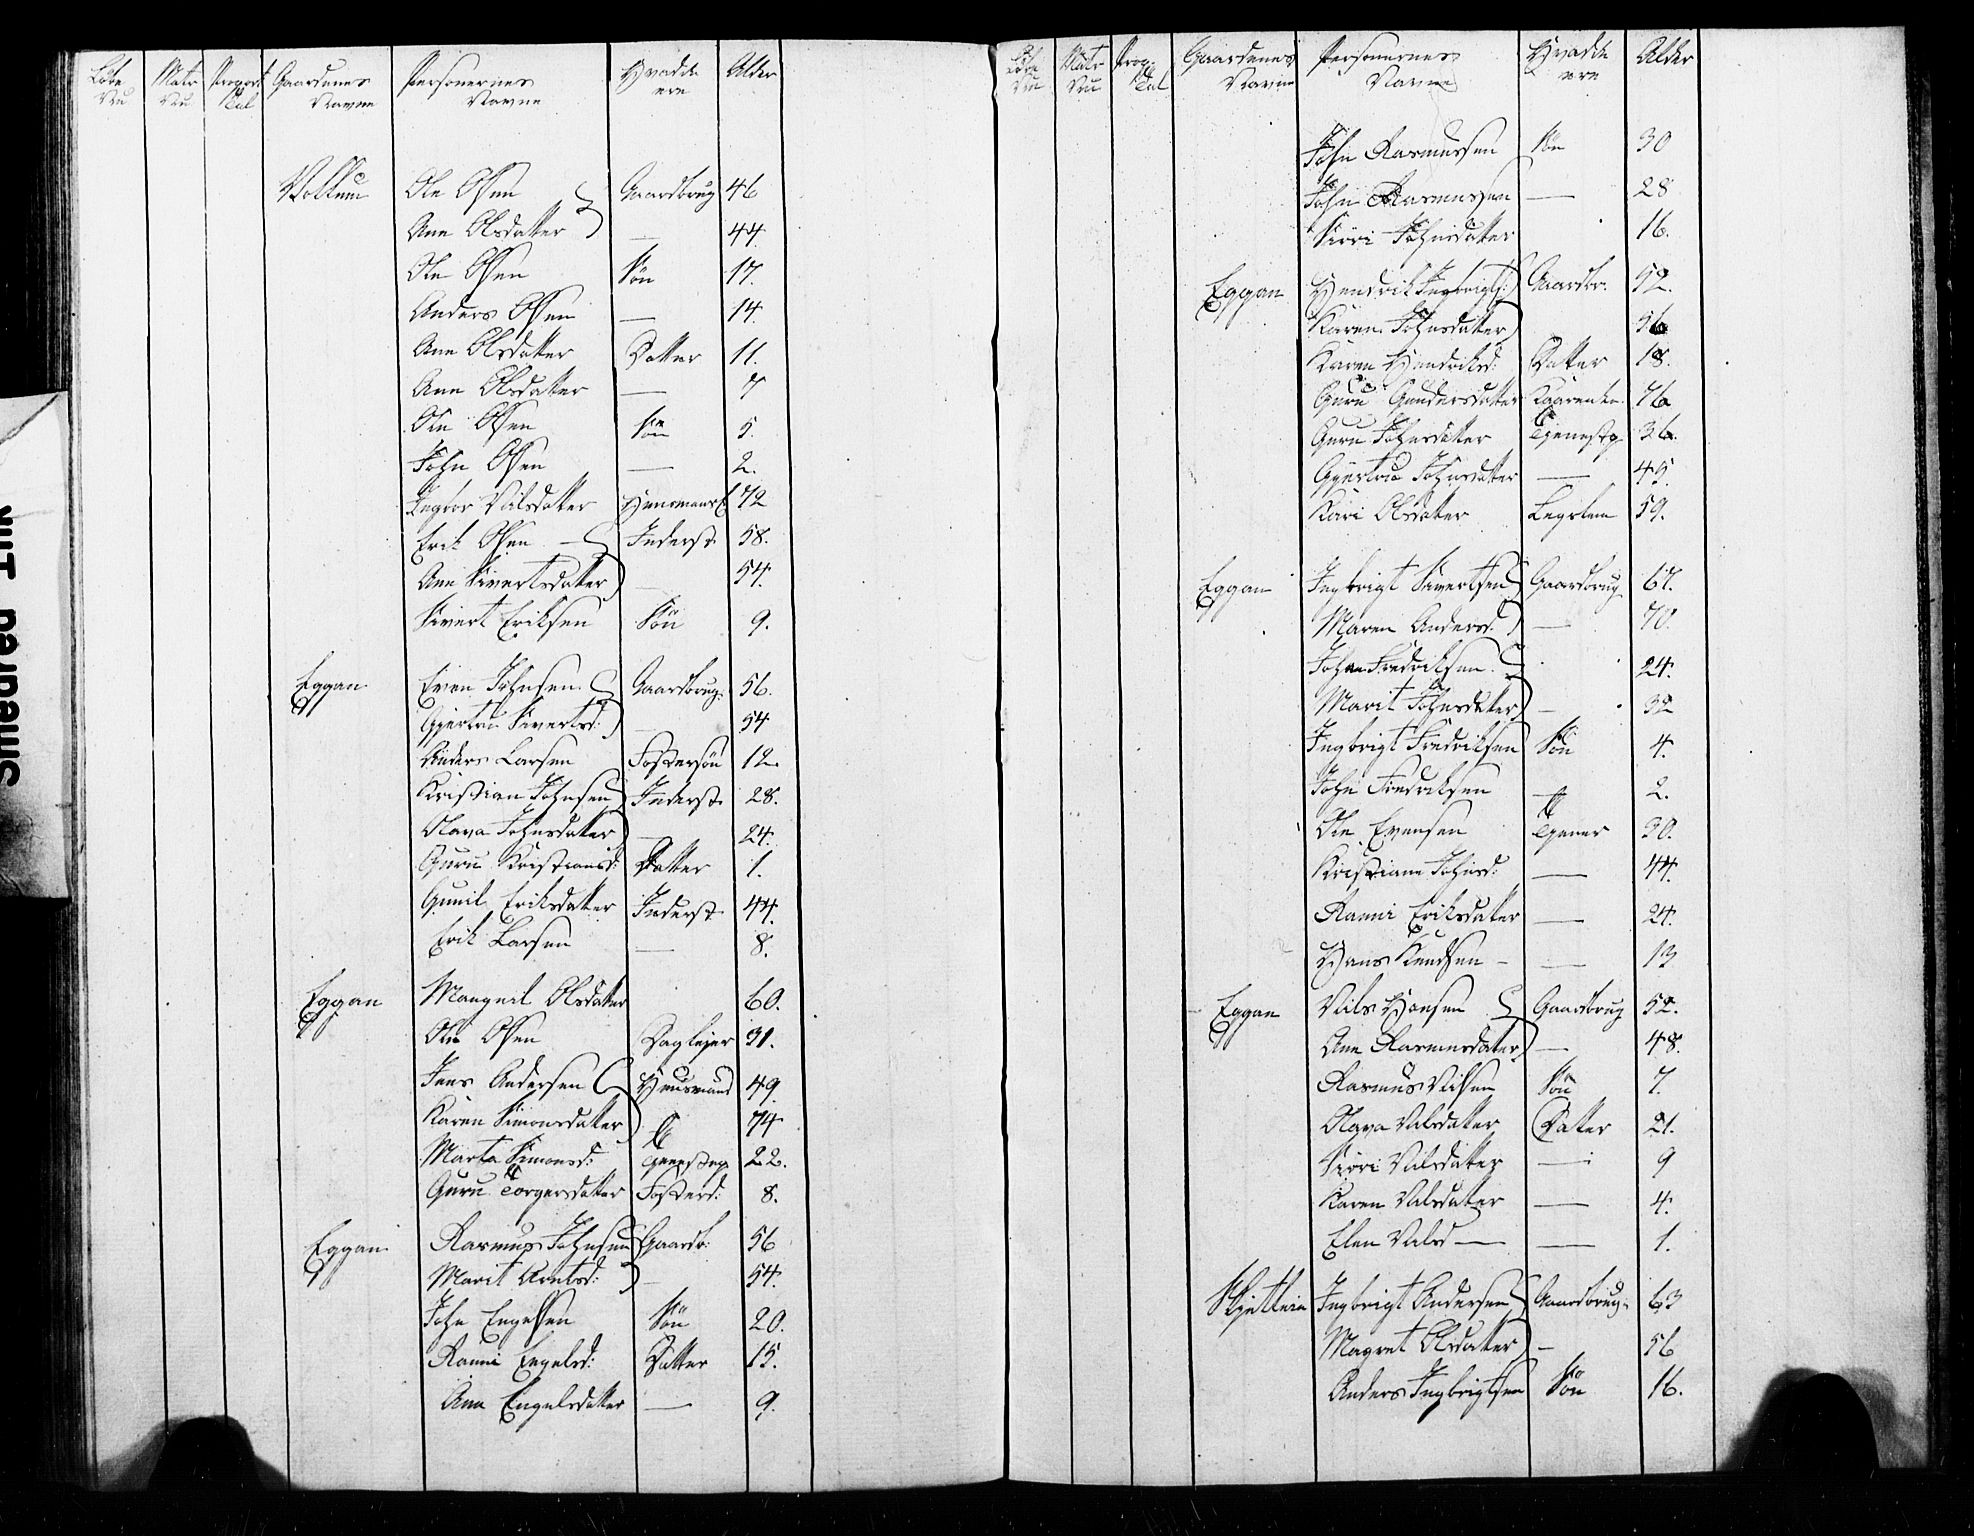 Løbe Nu	Matr Nu	Proport Tal	Gaardenes Navne	Personernes Navne	Hvad de ere	Alder
Volkum	Ole Olsen	Gaardbrug	46
Ane Olsdatter	—	44
Ole Olsen	Søn	17.
Anders Olsen	—	14
Ane Olsdatter	Datter	11.
Ane Olsdatter	—	7
Ole Olsen	Søn	5.
John Olsen	—	2.
Ingbor Nilsdatter	72
Erik Olsen	Inderst	58.
Ane Sivertsdatter	—	54.
Sivert Eriksen	Søn	9.
Eggan	Even Johnsen	Gaardbrug.	56.
Gjertru Sivertsd:	—	54
Anders Larsen	Fostersøn	12.
Kristian Johnsen	Inderst	28.
Olava Johnsdatter	—	24.
Guru Kristiansd:	Datter	1.
Gunil Eriksdatter	Inderst	44.
Erik Larsen	—	8.
Eggan	Olsdatter	60.
Ole Olsen	Daglejer	31.
Jens Andersen	Huusmand	49.
Karen Simonsdatter	74
Marta Simonsd:	22.
Guru Torgersdatter	Fosterd:	8.
Eggan	Rasmus Johnsen	Gaardb:	56
Marit Arntsd:	—	54.
John Engelsen	Søn	20.
Ranni Engelsd:	Datter	15.
Ane Engelsdatter	—	9.
Løbe Nu	Matr Nu	Prop: Tal	Gaardenes Navne	Personernes Navne	Hvad de ere	Alder
John Rasmussen	Søn	30
John Rasmussen	—	28
Siøri Johnsdatter	16.
Eggan	Hendrik Ingbrigts:	Gaardbr.	52.
Karen Johnsdatter	56
Karen Hendriksd:	Datter	18.
Guru Gundersdatter	76
Guru Johnsdatter	Tjenestp	36.
Gjertru Johnsdatter	—	45.
Kari Olsdatter	Legslem	59.
Eggan	Ingbrigt Sivertsen	Gaardbrug	67.
Maren Andersd.	—	70.
Johan Fredriksen.	24.
Marit Johnsdatter	—	32
Ingbrigt Fredriksen	Søn	4.
John Fredriksen	—	2.
Ole Evensen	Tjener	30.
Kristiane Johnsd:	—	44.
Ranni Eriksdatter	—	24.
Hans Knudsen	—	13
Eggan	Nils Hansen	Gaardbrug	52.
Ane Rasmusdatter	—	48.
Rasmus Nilsen	Søn	7.
Olava Nilsdatter	Datter	21.
Siøri Nilsdatter	—	9
Karen Nilsdatter	—	4.
Elen Nilsd —	—	1.
Skjetlein	Ingbrigt Andersen	Gaardbrug.	63
Magret Olsdatter	—	56
Anders Ingbrigtsen	Søn	16.